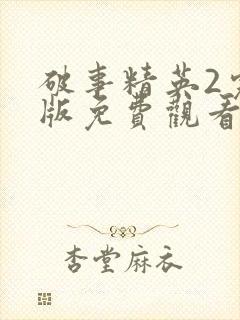 破事精英2完
版免費觀看
杏堂麻衣